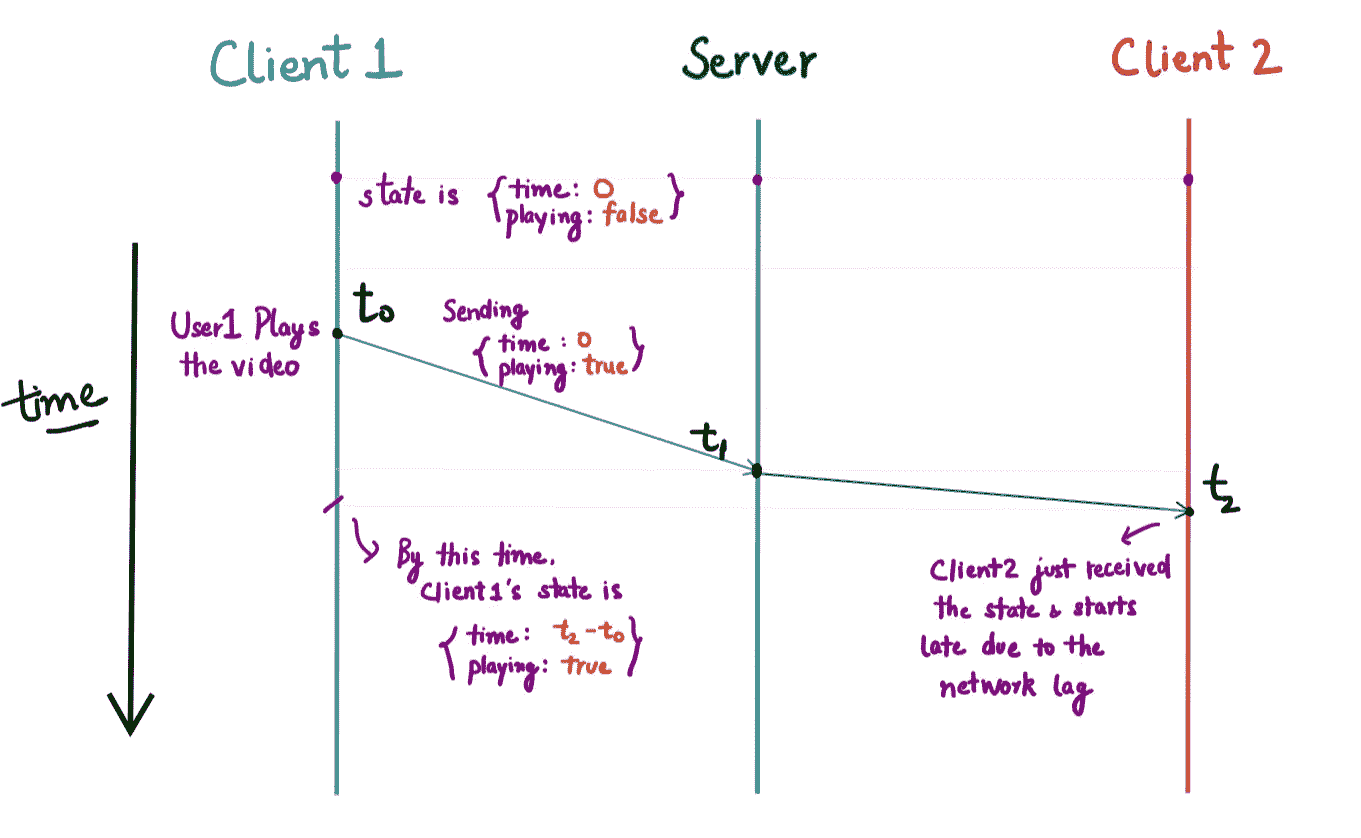 Client 1
Server
Client 2
state is { time: 0
playing: false }
t0
User1 Plays
the video
Sending
{ time : 0
playing: true }
time
t1
t2
By this time,
Client1's state is
{ time: t2-t0
playing: true }
Client2 just received
the state & starts
late due to the
network lag